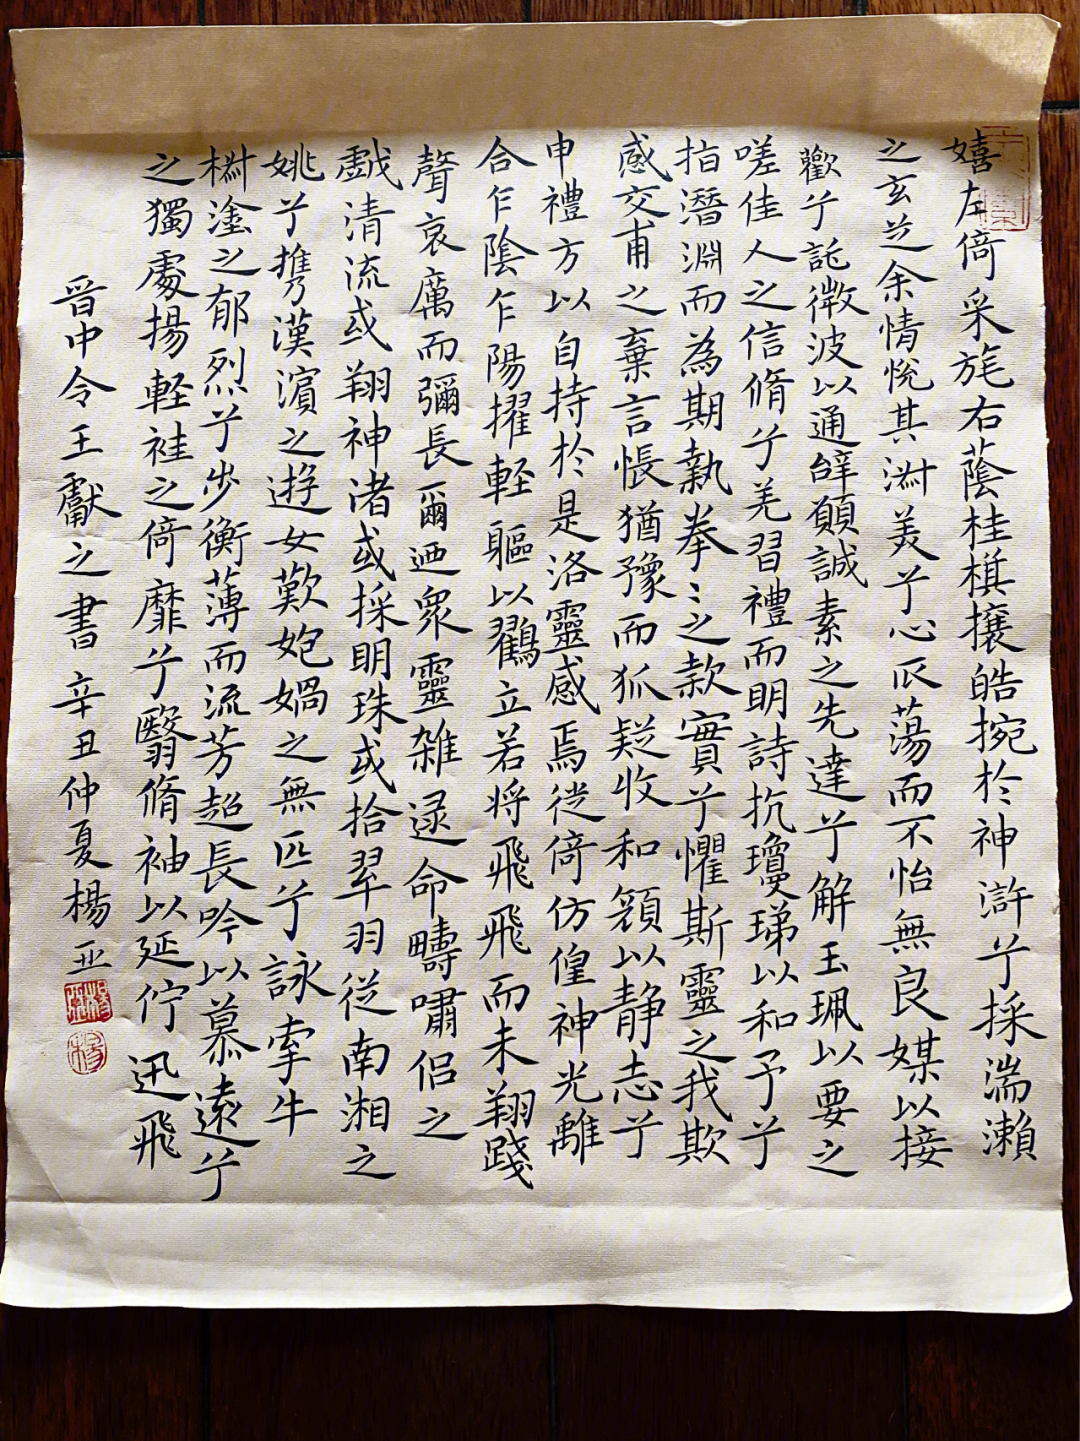 嬉左倚采旄右蔭桂棋攘皓捥於神滸兮採湍瀨
之玄芝余情悅其淑美兮心仄蕩而不怡無良媒以接
歡兮託微波以通辭願誠素之先達兮解玉珮以要之
嗟佳人之信脩兮羌習禮而明詩抗瓊珶以和予兮
指潛淵而為期執拳〻之款實兮懼斯靈之我欺
感交甫之棄言悵猶豫而狐疑收和顏以静志兮
申禮方以自持於是洛靈感焉徙倚仿偟神光離
合乍陰乍陽擢輕軀以鶴立若将飛飛而未翔踐
聲哀厲而彌長爾迺衆靈雑逯命疇嘯侣之
戲清流或翔神渚或採明珠或拾翠羽従南湘之
姚兮携漢濵之遊女歎匏媧之無匹兮詠牽牛
椒塗之郁烈兮步衡薄而流芳超長吟以慕遠兮
之獨處揚軽袿之倚靡兮翳脩袖以延佇迅飛
晋中令王獻之書辛丑仲夏楊亚